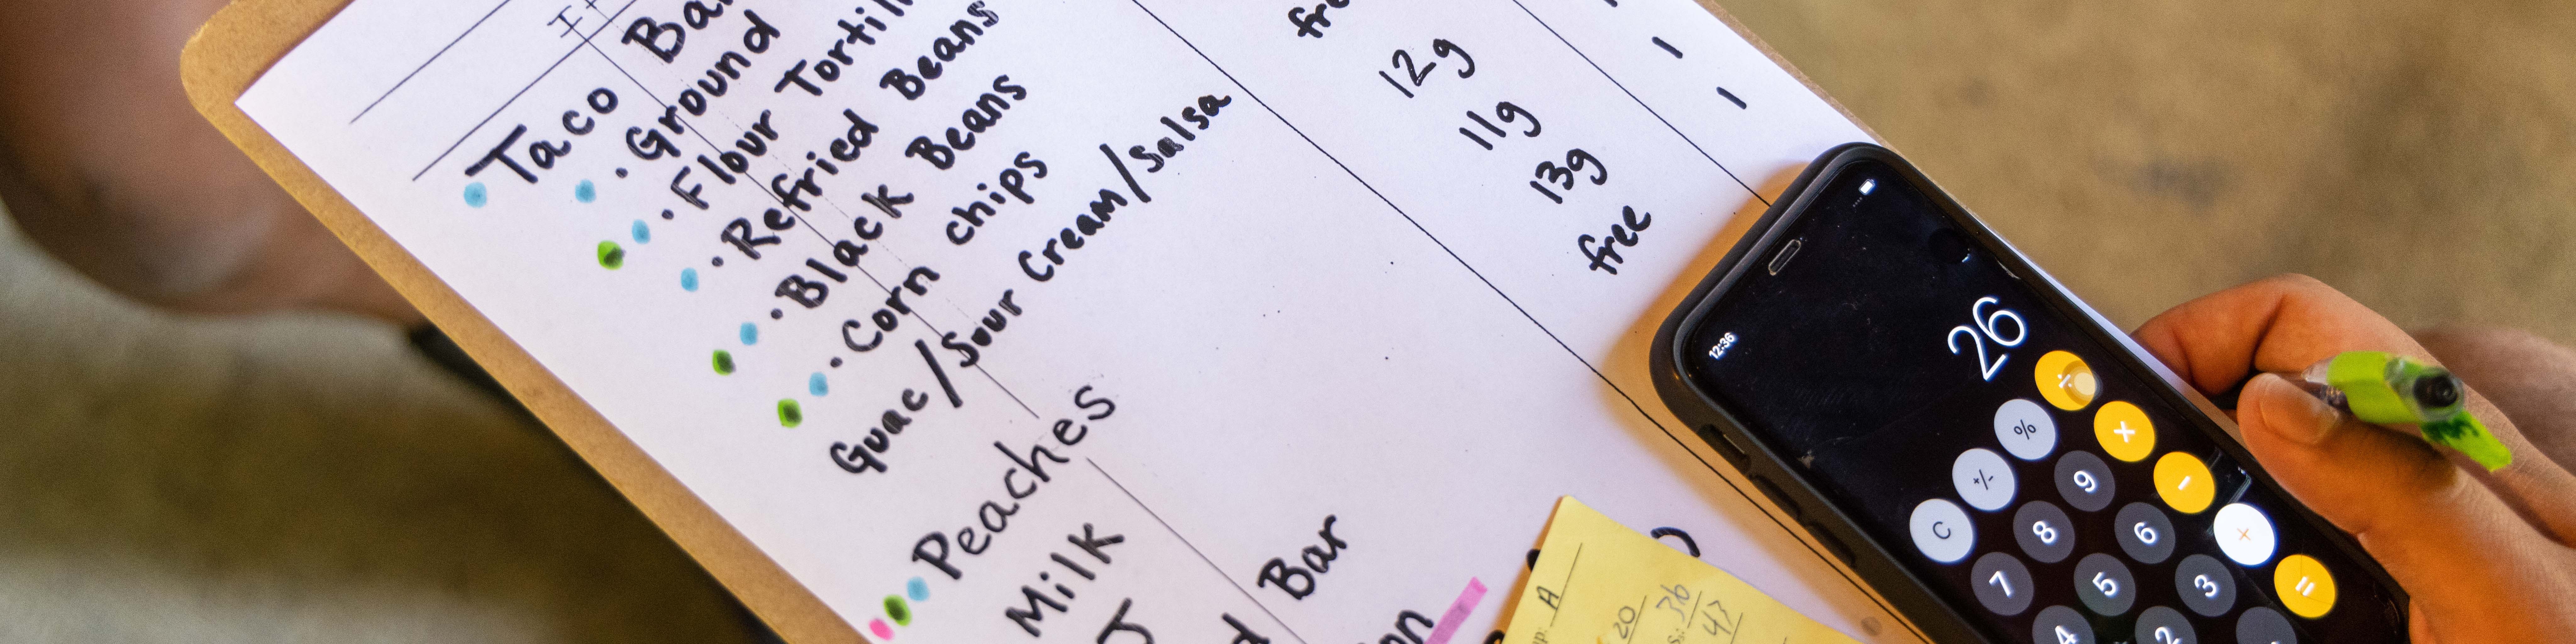 Taco
Ground
Flour
Refried Beans
Black Beans
Corn chips
Guac/Sour Cream/Salsa
Peaches
Milk
Bar
12g
11g
13g
free
1
1
A
20
36
47
12:36
26
÷
% ×
+/- 9 -
C 8 6 +
7 5 3 =
4 2